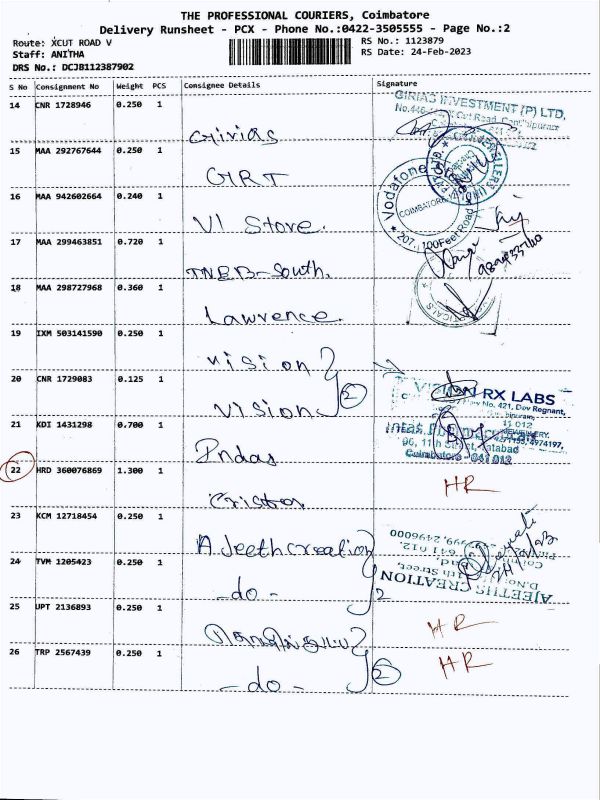 THE PROFESSIONAL COURIERS, Coimbatore
Delivery Runsheet - PCX - Phone No.:0422-3505555 - Page No.:2
Route: XCUT ROAD V
Staff: ANITHA
DRS No.: DCJB112387902
RS No.: 1123879
RS Date: 24-Feb-2023
S No Consignment No Weight PCS Consignee Details Signature
14 CNR 1728946 0.250 1
Girias
GIRIAS INVESTMENT (P) LTD,
15 MAA 292767644 0.250 1
GRT
16 MAA 942602664 0.240 1
VI Store.
Vodafone Store
COIMBATORE
* 207, 100Feet Road *
17 MAA 299463851 0.720 1
TNEB-South.
18 MAA 298727968 0.360 1
Lawrence.
19 IXM 503141590 0.250 1
vision
20 CNR 1729083 0.125 1
vision 2
RX LABS
No. 421, Dev Regnant,
21 KDI 1431298 0.700 1
Indas
Coimbatore - 641 012
22 HRD 360076869 1.300 1
HR
23 KCM 12718454 0.250 1
A Jeeth creation
24 TVM 1205423 0.250 1
- do - 2
AJEETHS CREATION
11th Street,
25 UPT 2136893 0.250 1
HR
26 TRP 2567439 0.250 1
- do - 2
HR